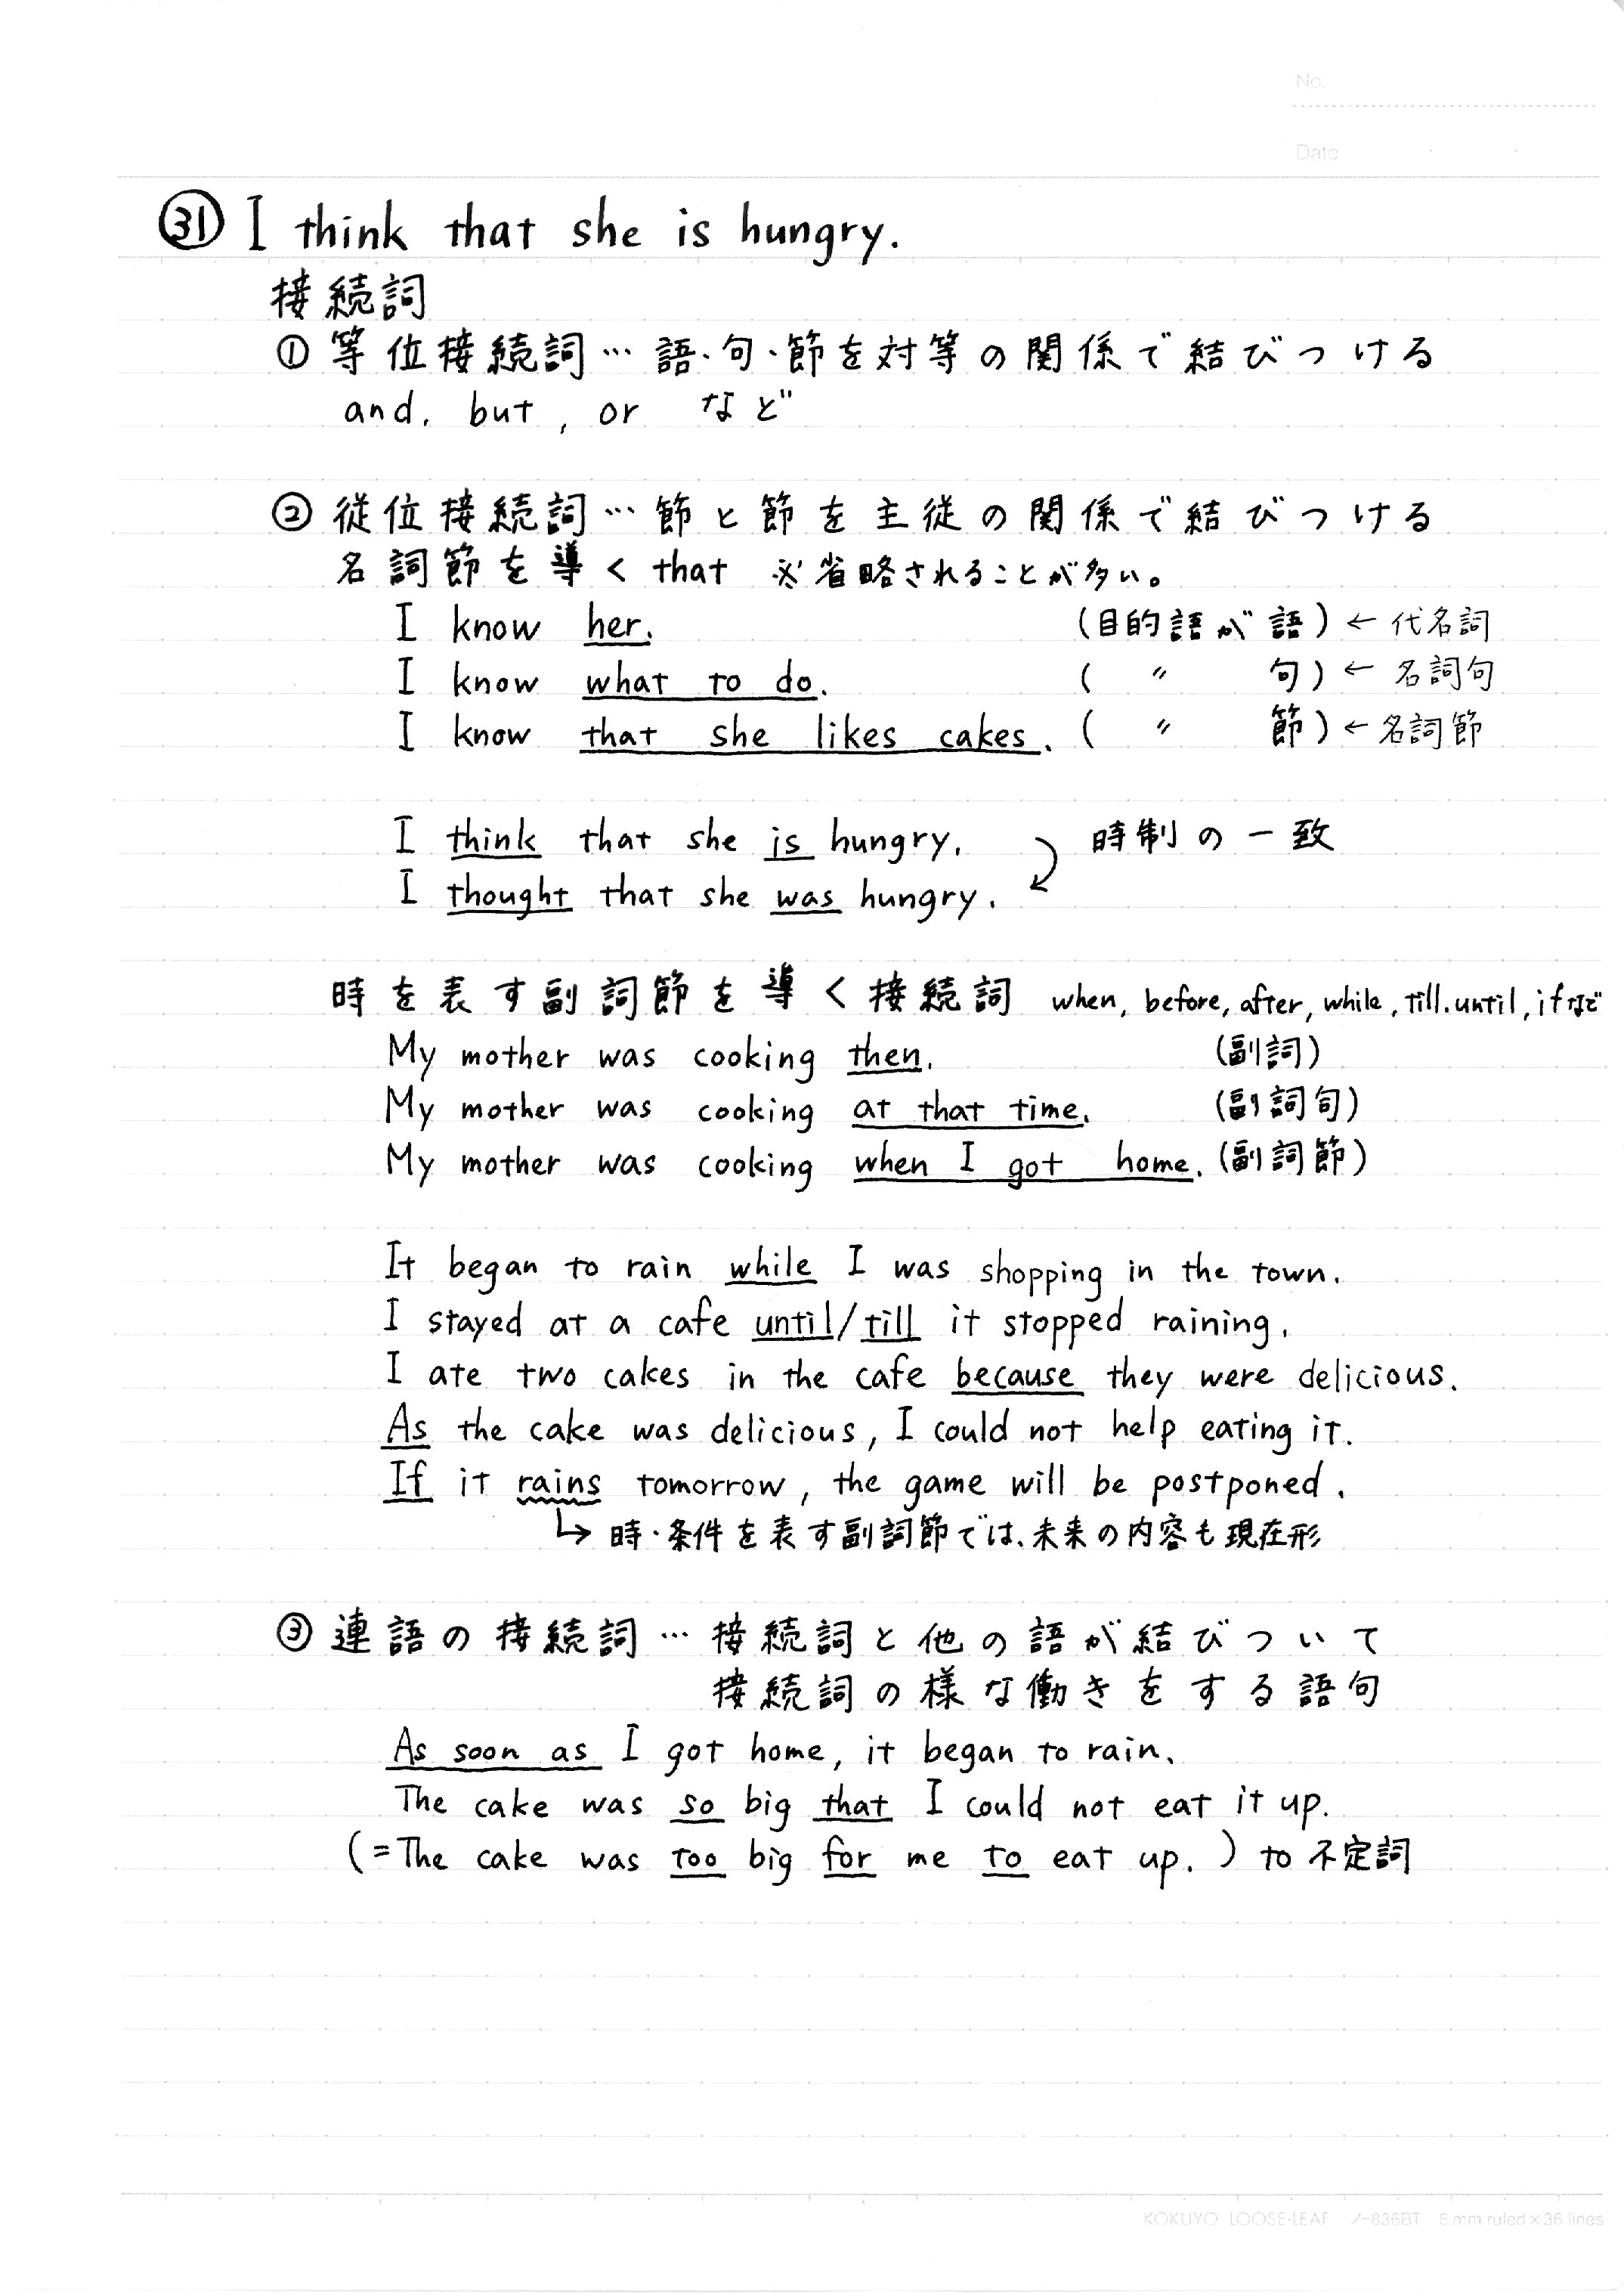 No.
Date
㉛ I think that she is hungry.
接続詞
① 等位接続詞…語・句・節を対等の関係で結びつける
and, but, or など
② 従位接続詞…節と節を主従の関係で結びつける
名詞節を導く that ※省略されることが多い。
I know her. (目的語が語) ← 代名詞
I know what to do. ( 〃 句) ← 名詞句
I know that she likes cakes. ( 〃 節) ← 名詞節
I think that she is hungry. 時制の一致
I thought that she was hungry.
時を表す副詞節を導く接続詞 when, before, after, while, till. until, if など
My mother was cooking then. (副詞)
My mother was cooking at that time. (副詞句)
My mother was cooking when I got home. (副詞節)
It began to rain while I was shopping in the town.
I stayed at a cafe until/till it stopped raining.
I ate two cakes in the cafe because they were delicious.
As the cake was delicious, I could not help eating it.
If it rains tomorrow, the game will be postponed.
↳ 時・条件を表す副詞節では、未来の内容も現在形
③ 連語の接続詞…接続詞と他の語が結びついて
接続詞の様な働きをする語句
As soon as I got home, it began to rain.
The cake was so big that I could not eat it up.
(=The cake was too big for me to eat up.) to 不定詞
KOKUYO LOOSE-LEAF ノ-836BT 6 mm ruled×36 lines